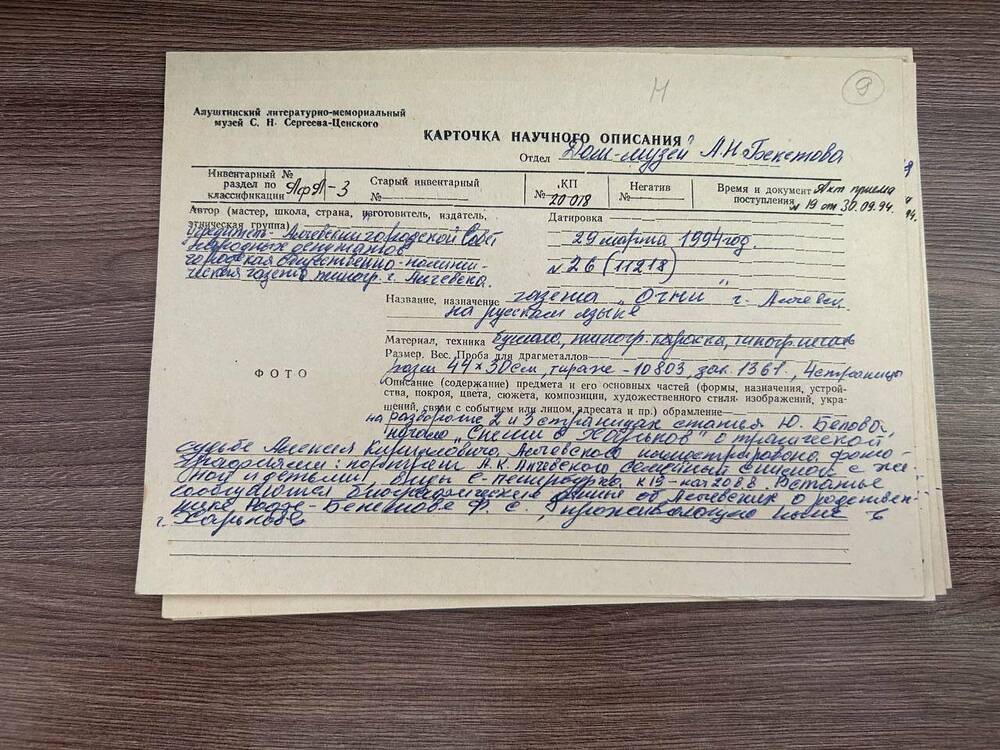 Н
9
Алуштинский литературно-мемориальный
музей С. Н. Сергеева-Ценского
КАРТОЧКА НАУЧНОГО ОПИСАНИЯ
Отдел Дом-музей А.Н. Бекетова
Инвентарный №
раздел по
классификации -3
Старый инвентарный
№
КП
№ 20 018
Негатив
№
Время и документ Акт приема
поступления № 19 от 30.09.94.
Автор (мастер, школа, страна, изготовитель, издатель,
этническая группа)
учредитель- Алчевский городской Совет
народных депутатов
городская общественно-полити-
ческая газета типогр. г. Алчевска.
Датировка
29 марта 1994 год.
№ 26 (11218)
Название, назначение газета „Огни" г. Алчевск
на русском языке
Материал, техника бумага, типогр. краска, типогр. печать
Размер. Вес. Проба для драгметаллов
разм 44×30 см, тираж - 10803, зак. 1361, 4 страницы
ФОТО
Описание (содержание) предмета и его основных частей (формы, назначения, устройст-
ва, покроя, цвета, сюжета, композиции, художественного стиля, изображений, укра-
шений, связи с событием или лицом, адресата и пр.) обрамление
на развороте 2 и 3 страницах статья Ю. Беловой,
начало Харьков" о трагической
судьбе Алексея Кирилловича Алчевского иллюстрирована фото-
графиями: портрет А.К. Алчевского семейный снимок с же-
ной и детьми, виды С-петербурга к. 19-нач 20 вв. В статье
сообщаются биографические данные об Алчевских о родствен-
нике Бекетове Ф. С., проживающих ныне в
г. Харькове